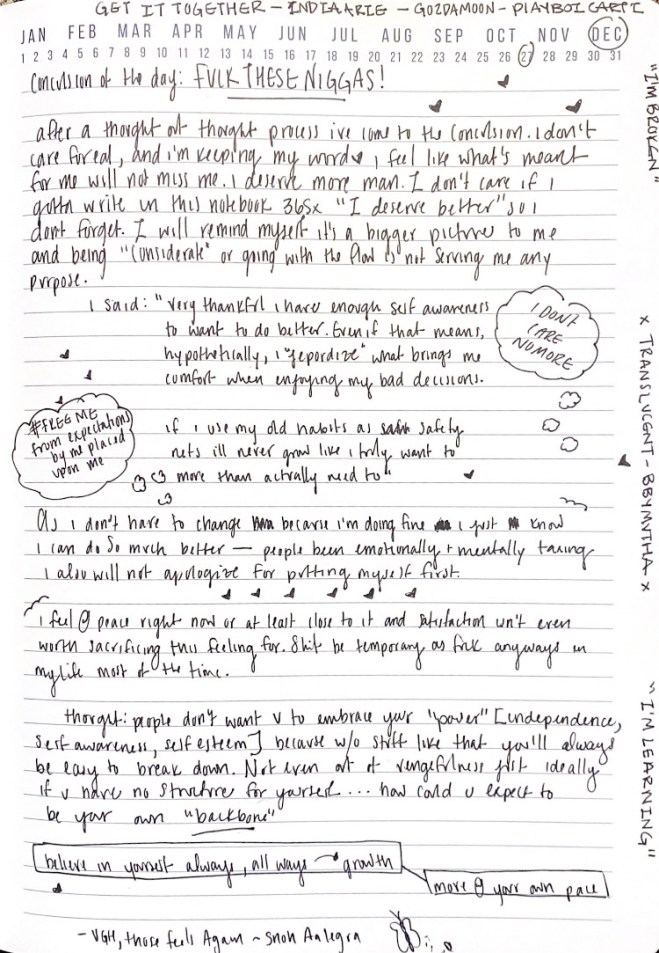 GET IT TOGETHER - INDIA ARIE - GOZDAMOON - PLAYBOI CARTI
JAN FEB MAR APR MAY JUN JUL AUG SEP OCT NOV DEC
1 2 3 4 5 6 7 8 9 10 11 12 13 14 15 16 17 18 19 20 21 22 23 24 25 26 27 28 29 30 31
Conclusion of the day: FUCK THESE NIGGAS!
after a thought out thought process ive come to the conclusion. I don't
care foreal, and i'm keeping my word. I feel like what's meant
for me will not miss me. I deserve more man. I don't care if I
gotta write in this notebook 365x "I deserve better" so I
dont forget. I will remind myself it's a bigger picture to me
and being "considerate" or going with the flow is not serving me any
purpose.
I said: "very thankful i have enough self awareness
to want to do better. Even if that means,
hypothetically, i "jepordize" what brings me
comfort when enjoying my bad decisions.
I DONT
CARE
NO MORE
#FREE ME
from expectations
by me placed
upon me
if i use my old habits as safety
nets ill never grow like i truly want to
<3 more than actually need to"
As i don't have to change because i'm doing fine i just know
I can do so much better — people been emotionally + mentally taxing
I also will not apologize for putting myself first.
i feel @ peace right now or at least close to it and satisfaction isn't even
worth sacrificing this feeling for. Shit be temporary as fuck anyways in
my life most of the time.
thought: people don't want u to embrace your "power" [independence,
self awareness, self esteem] because w/o stuff like that you'll always
be easy to break down. Not even out of vengefulness just ideally
if u have no structure for yourself... how could u expect to
be your own "backbone"
believe in yourself always, all ways → growth
move @ your own pace
- UGH, those feels Again ~ Snoh Aalegra
"I'M BROKEN"
x TRANSLUCENT - BBYMUTHA x
"I'M LEARNING"